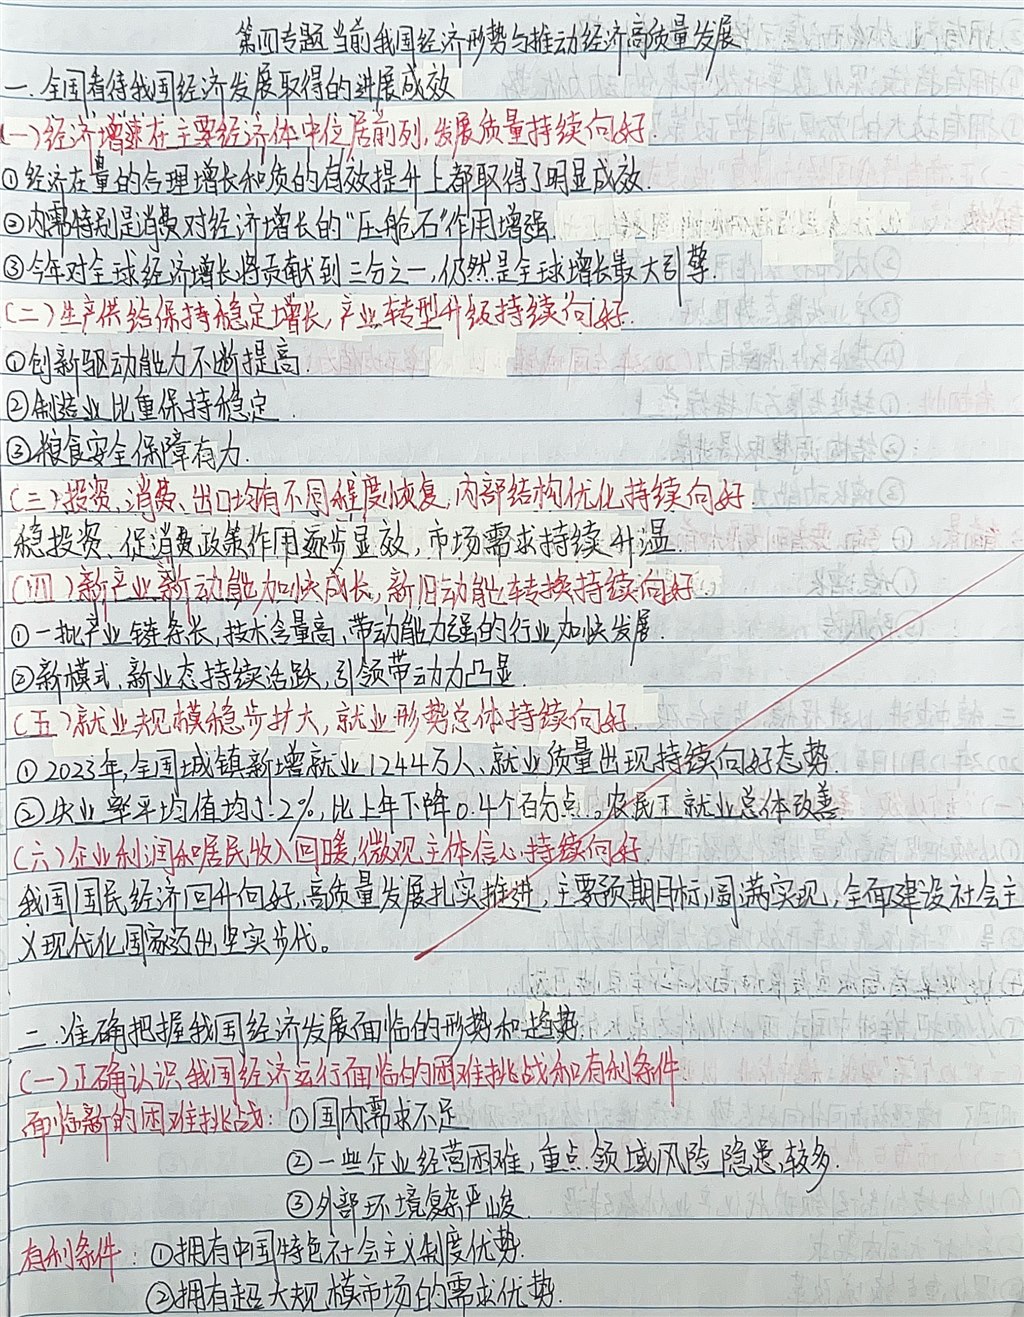 第四专题 当前我国经济形势与推动经济高质量发展
一.全国看待我国经济发展取得的进展成效
(一)经济增速在主要经济体中位居前列,发展质量持续向好.
①经济在量的合理增长和质的有效提升上都取得了明显成效.
②内需特别是消费对经济增长的"压舱石"作用增强.
③今年对全球经济增长将贡献到三分之一,仍然是全球增长最大引擎.
(二)生产供给保持稳定增长,产业转型升级持续向好.
①创新驱动能力不断提高.
②制造业比重保持稳定.
③粮食安全保障有力.
(三)投资、消费、出口均有不同程度恢复,内部结构优化持续向好
稳投资、促消费政策作用逐步显效,市场需求持续升温.
(四)新产业新动能加快成长,新旧动能转换持续向好.
①一批产业链条长,技术含量高,带动能力强的行业加快发展.
②新模式、新业态持续活跃,引领带动力凸显.
(五)就业规模稳步扩大,就业形势总体持续向好.
①2023年,全国城镇新增就业1244万人、就业质量出现持续向好态势.
②失业率平均值均5.2%,比上年下降0.4个百分点。农民工就业总体改善
(六)企业利润和居民收入回暖,微观主体信心持续向好.
我国国民经济回升向好,高质量发展扎实推进,主要预期目标圆满实现,全面建设社会主
义现代化国家迈出坚实步伐。
二.准确把握我国经济发展面临的形势和趋势.
(一)正确认识我国经济运行面临的困难挑战和有利条件
面临新的困难挑战:①国内需求不足
②一些企业经营困难,重点领域风险隐患较多.
③外部环境复杂严峻.
有利条件:①拥有中国特色社会主义制度优势.
②拥有超大规模市场的需求优势.